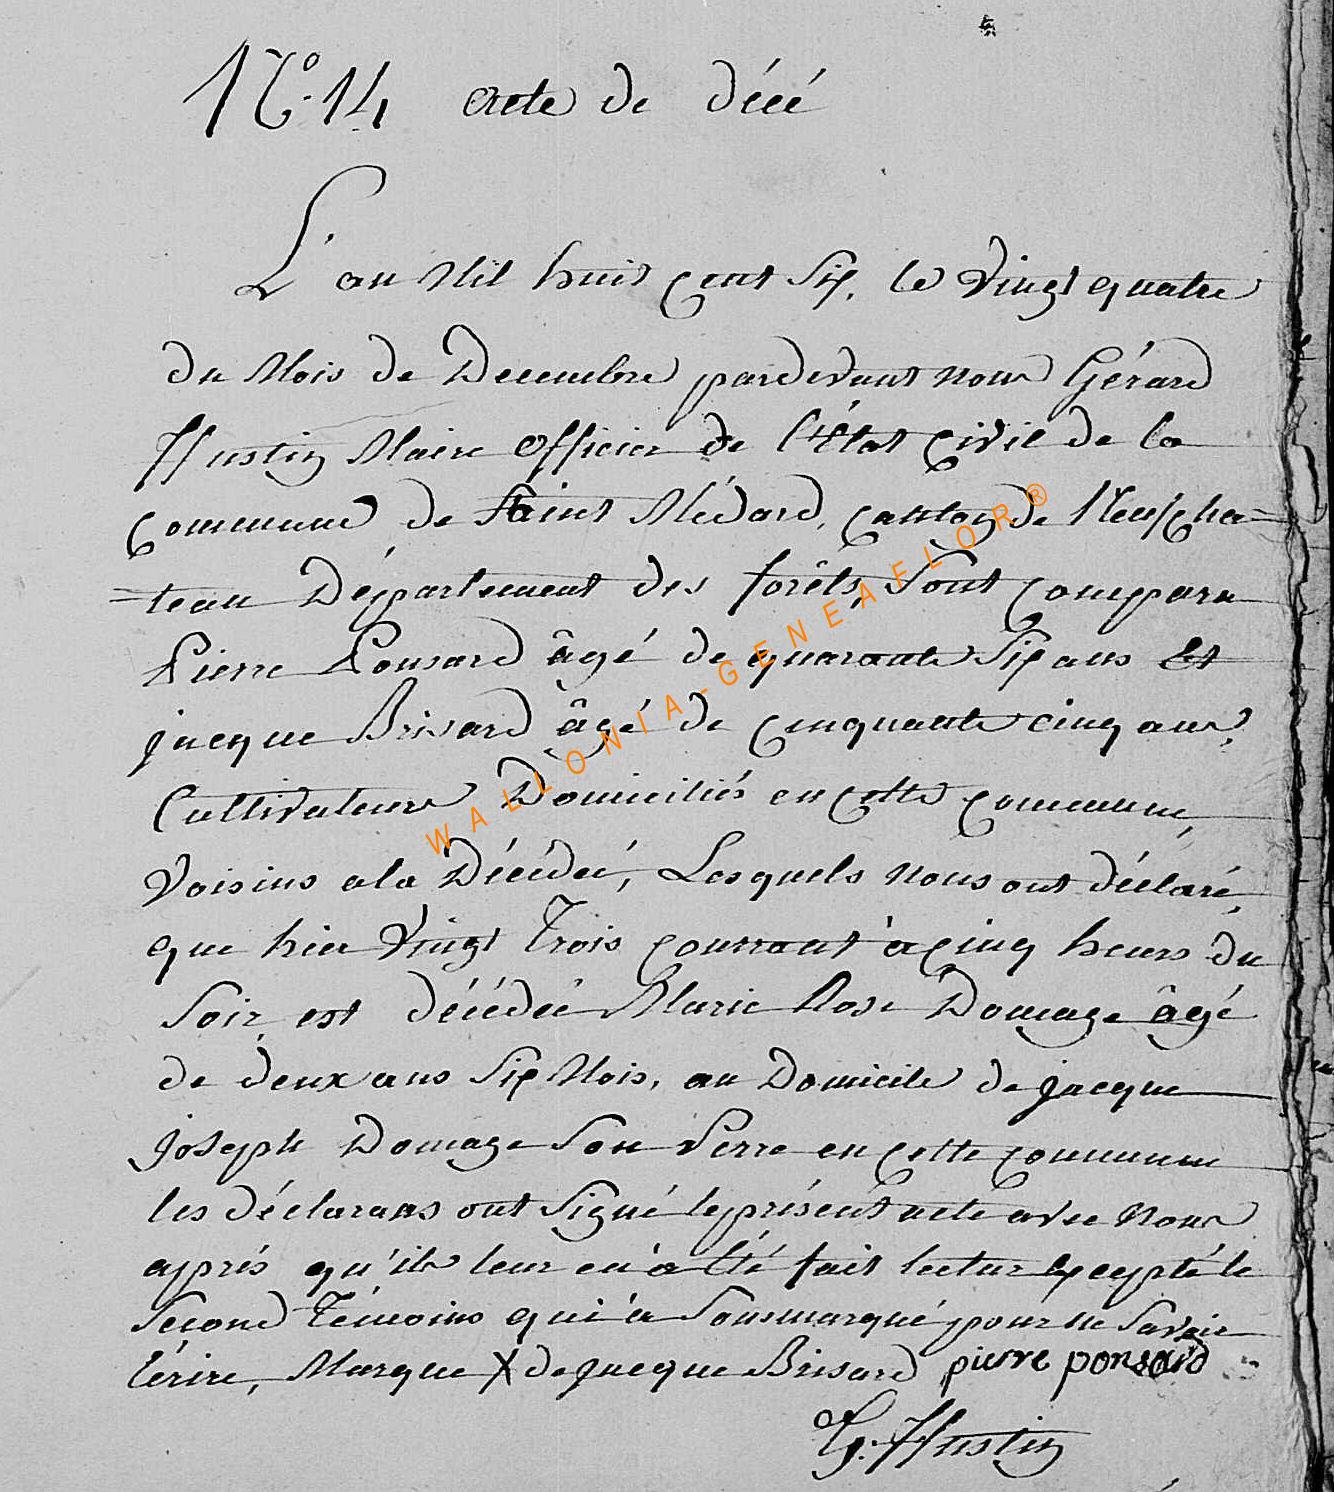 N.º 14 acte de décé
L'an Mil huit Cent Six, le Vingt quatre
du Mois de Decembre pardevant nous Gérard
Hustin Maire Officier de l'État Civil de la
Commune de Saint Médard, Canton de Neufcha=
=teau Département des forêts, Sont Comparu
Pierre Ponsard âgé de quarante Six ans Et
jacque Brisard âgé de Cinquante cinq ans,
Cultivateurs Domiciliés en Cette Commune,
Voisins a la Décédeé, Lesquels nous ont déclaré,
que hier Vingt Trois Courrant à Cinq heurs du
Soir, est décédée Marie Rose Domage âgé
de deux ans Six Mois, au Domicile de jacque
joseph Domage Son Perre en Cette Commune
les déclarans ont Signé le présent acte avec Nous
après qu'ils leur en à Été fait lectur Excepté le
Second Témoins qui à Sousmarqué pour ne Savoir
Écrire, Marque X de jacque Brisard pierre ponsard
G. Hustin
WALLONIA-GENEAFLOR®